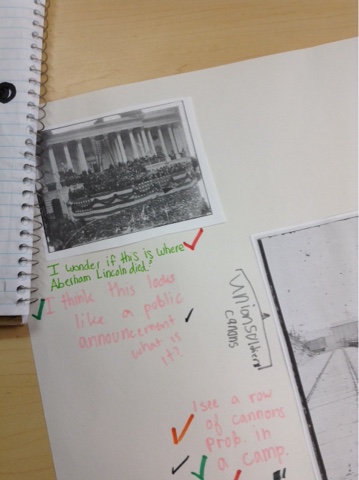 I wonder if this is where
Abraham Lincoln died.
I think this looks
like a public
announcement
what is
it?
Union soldiers
canons
I see a row
of cannons
prob. in
a camp.